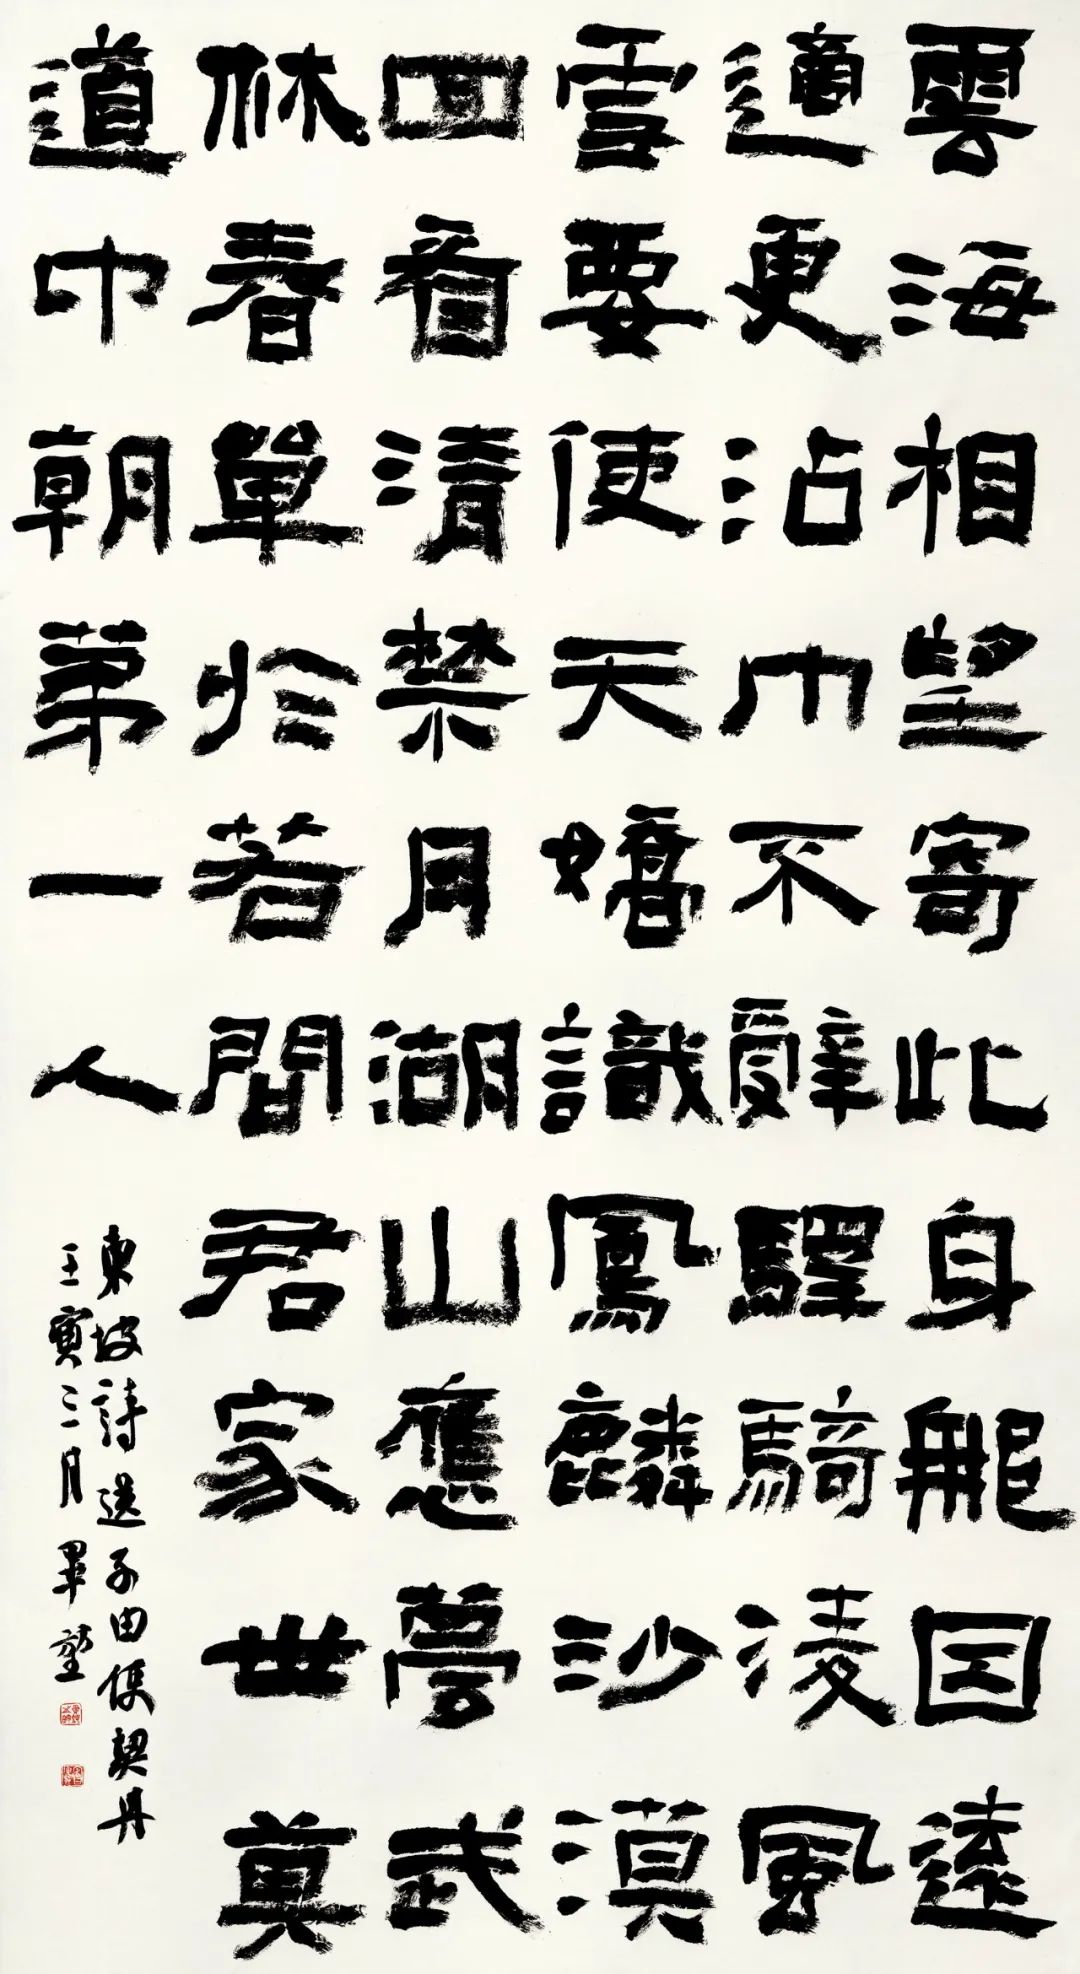 雲海相望寄此身那因遠
適更沾巾不辭驛騎淩風
雪要使天嬌識鳳麟沙漠
回看清禁月湖山應夢武
林春單於若問君家世莫
道中朝第一人
東坡詩送子由使契丹
壬寅三月畢堃